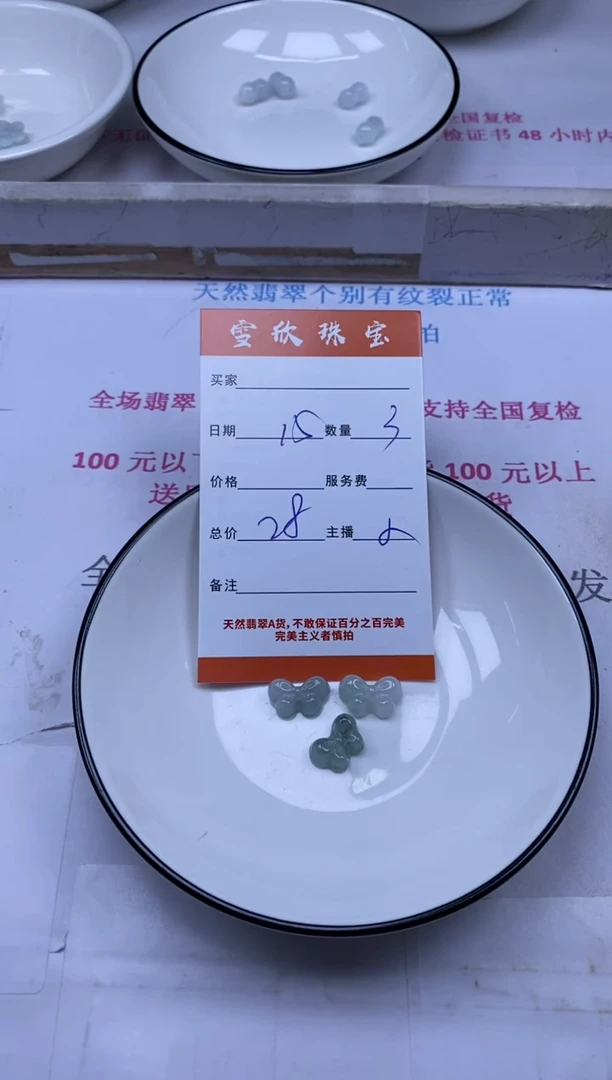 全国复检
检证书 48 小时内
天然翡翠个别有纹裂正常
拍
雪欣珠宝
买家
全场翡翠
支持全国复检
日期 15 数量 3
100 元以
100 元以上
价格 服务费
送
货
总价 28 主播
全
发
备注
天然翡翠A货，不敢保证百分之百完美
完美主义者慎拍